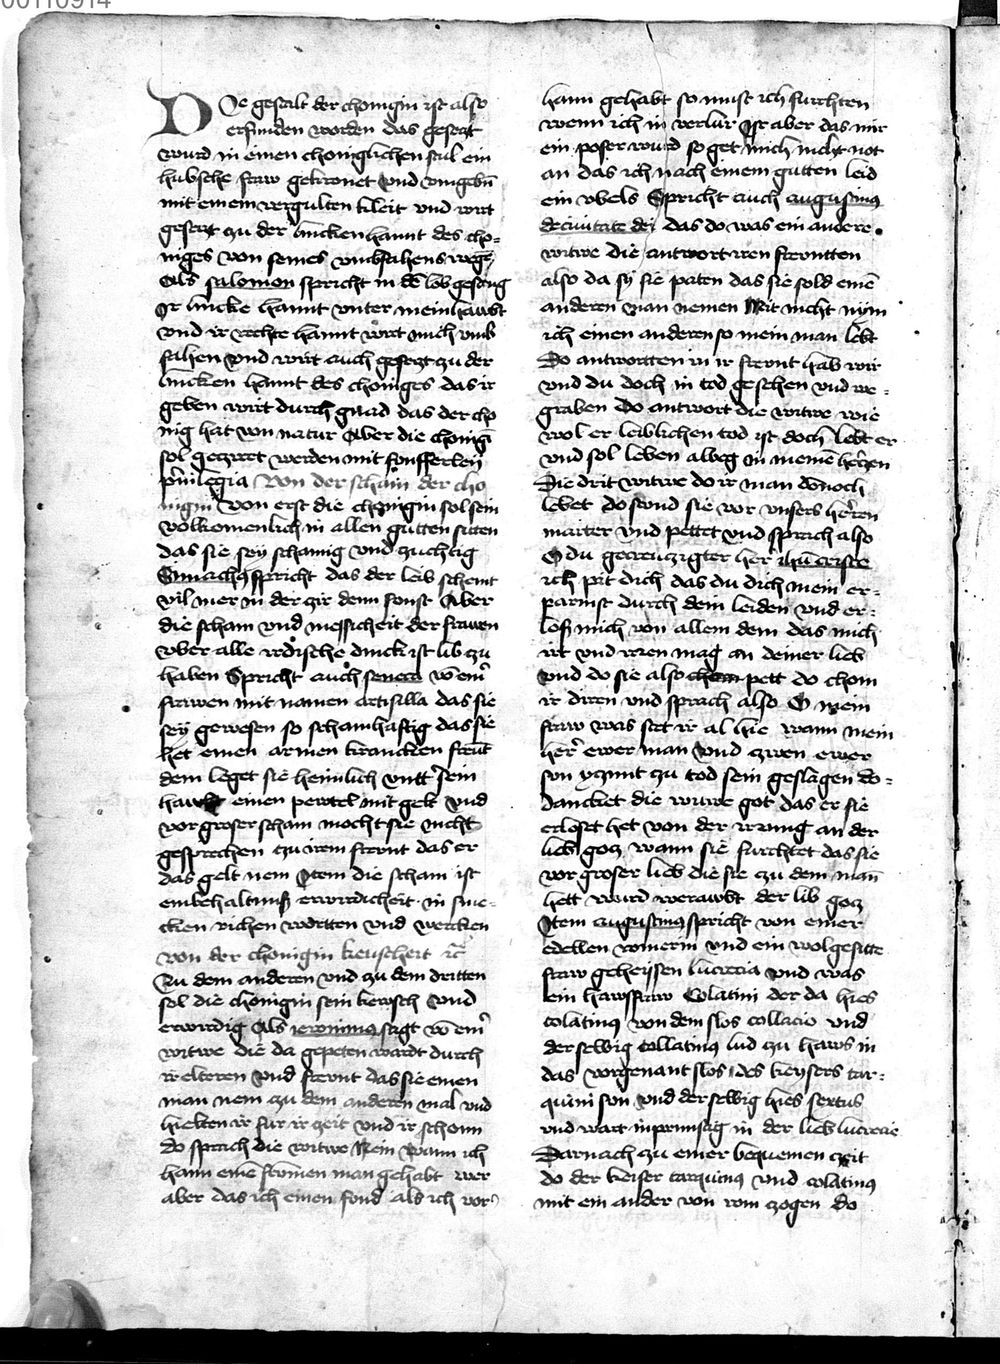 00110914
De gestalt der chonigin ist also
erfunden worden das gesetzt
wurd in einen choniglichen stul ein
hubsche fraw gekronet vnd vmgebn̄
mit einem vergulten kleit vnd wirt
gesetzt zu der lincken hannt des cho=
niges von seines vmbfahens wegē
Als salomon spricht in dē lobgesang
Sr lincke hannt vnter mein hawbt
vnd ir rechte hannt wirt mich vmb
fahen vnd wirt auch gesetzt zu der
lincken hannt des choniges das ir
geben wirt durch gnad das der cho
nig hat von natur Aber die chonigī
sol geziret werden mit funfferley
p̄uilegia von der scham der cho
nigin von erst die chonigin sol sein
volkomenlich in allen gutten siten
das sie sey schamig vnd zuchtig
Simachꝰ spricht das der leib scheint
vil mer in der zir denn sonst Aber
die scham vnd messicheit der frawen
vber alle irdische dinck ist lib zu
haben Spricht auch seneca vō eim̄
frawen mit namen Artisilla das sie
sey gewesen so schamhaftig das sie
het einen armen krancken freūt
dem leget sie heimlich vntt̄ sein
hawbt einen pewtel mit gelt vnd
vor groser scham mocht sie nicht
gesprechen zu irem frewnt das er
das gelt nem Item die scham ist
ein behaltnuß erwirdicheit in sme=
cken richen wortten vnd wercken
von der chonigin keuscheit ꝛc̄
Zu dem anderen vnd zu dem dritten
sol die chonigin sein kewsch vnd
erwirdig Als ieronimus sagt vō ein̄
witwe die da gepeten wardt durch
ir elteren vnd frewnt das sie einen
man nem zu dem anderen mal vnd
hielten ir fur ir zeit vnd ir schonn
do sprach die witwe Nein wann ich
hann eine frumen man gehabt wer
aber das ich einen fond als ich vor
hann gehabt so must ich furchten
wenn ich in verlur Ist aber das mir
ein poser wurd so get mich nicht not
an das ich nach einem gutten leid
ein vbels Spricht auch augustinus
de ciuitate dei das do was ein andere
witwe die antwort iren frewntten
also da sy sie paten das sie sold einē
anderen man nemen Mit nicht nym
ich einen anderen so mein man lebt
Do antwortten in ir frewnt hab wir
vnd du doch in tod gesehen vnd we=
graben Do antwort die witwe wie
wol er leiblichen tod ist doch lebt er
vnd sol leben alweg in meinē herczen
Die drit witwe do ir man dennoch
lebet do stund sie vor vnsers herren
marter vnd pettet vnd sprach also
O du gecreuczigter her ihū criste
ich pit dich das du dich mein er=
parmst durch dein leiden vnd er=
loß mich von allem dem das mich
irt vnd irren mag an deiner lieb
vnd do sie also pett do chom
ir diren vnd sprach also O mein
fraw was stet ir al hie wann mein
her̄ ewer man vnd zwen ewer
sun yczunt zu tod sein geslagen do=
Dancket die witwe got das er sie
erloset het von der irrung an der
lieb gocz wann sie furchtet das sie
vor groser lieb die sie zu dem man̄
hett wurd werawbt der lib gocz
Item augustinus spricht von einer
edellen romerin vnd ein wolgesitte
fraw geheyssen lucrecia vnd was
ein hawsfraw Colatini der da hies
colatinꝰ von dem slos collacio vnd
der selbig collatinꝰ lud zu haws in
das vorgenant slos des keysers tar=
quini sun vnd der selbig hies sextus
vnd wart inprunstig in der lieb lucrecie
Darnach zu einer bequemen czeit
do der keiser tarquinꝰ vnd colatinꝰ
mit ein ander von rom zogen do